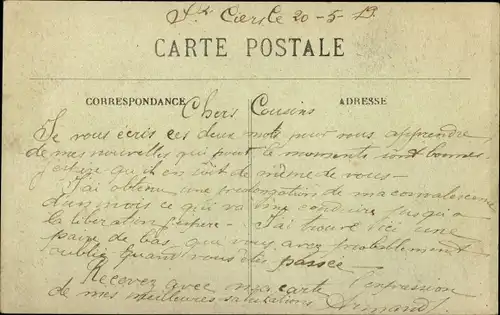 St Ciers le 20-5-19
CARTE POSTALE
CORRESPONDANCE
ADRESSE
Chers Cousins
Je vous écris ces deux mots pour vous apprendre
de mes nouvelles qui pour le moments sont bonnes
j'espère qu'il en soit de même de vous-
J'ai obtenu une prolongation de ma convalescence
d'un mois ce qui va me conduire jusqu'a
la liberation j'espère - J'ai trouvé ici une
paire de bas, que vous avez probablement
oublié quand vous êtes passée
Recevez avec ma carte l'expression
de mes meilleures salutations Armand